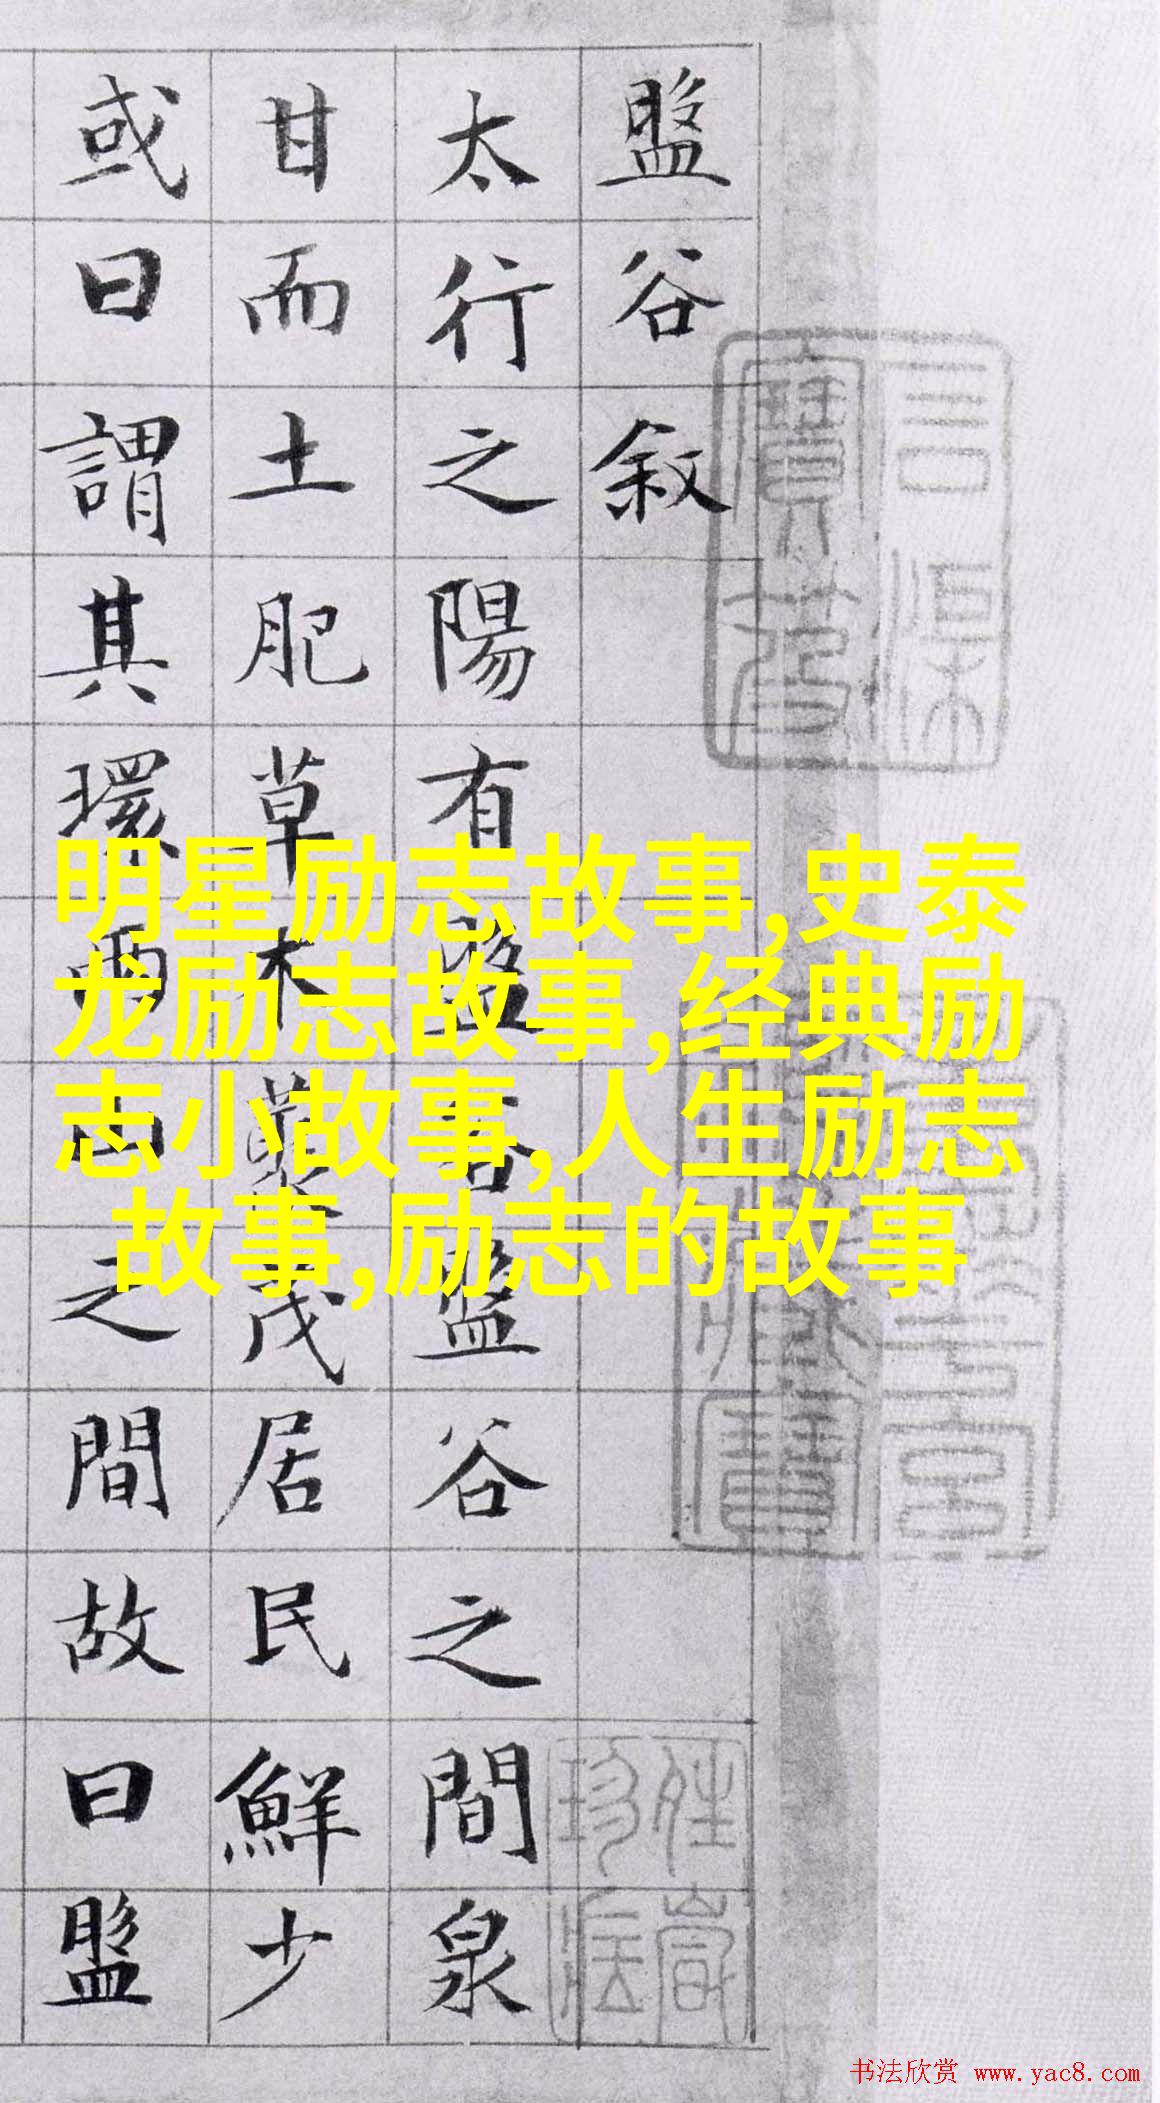 盤谷敘
太行之陽有盤谷盤谷之間泉
甘而土肥草木藂茂居民鮮少
或曰謂其環兩山之間故曰盤
明星励志故事,史泰
龙励志故事,经典励
志小故事,人生励志
故事,励志的故事
书法欣赏 www.yac8.com